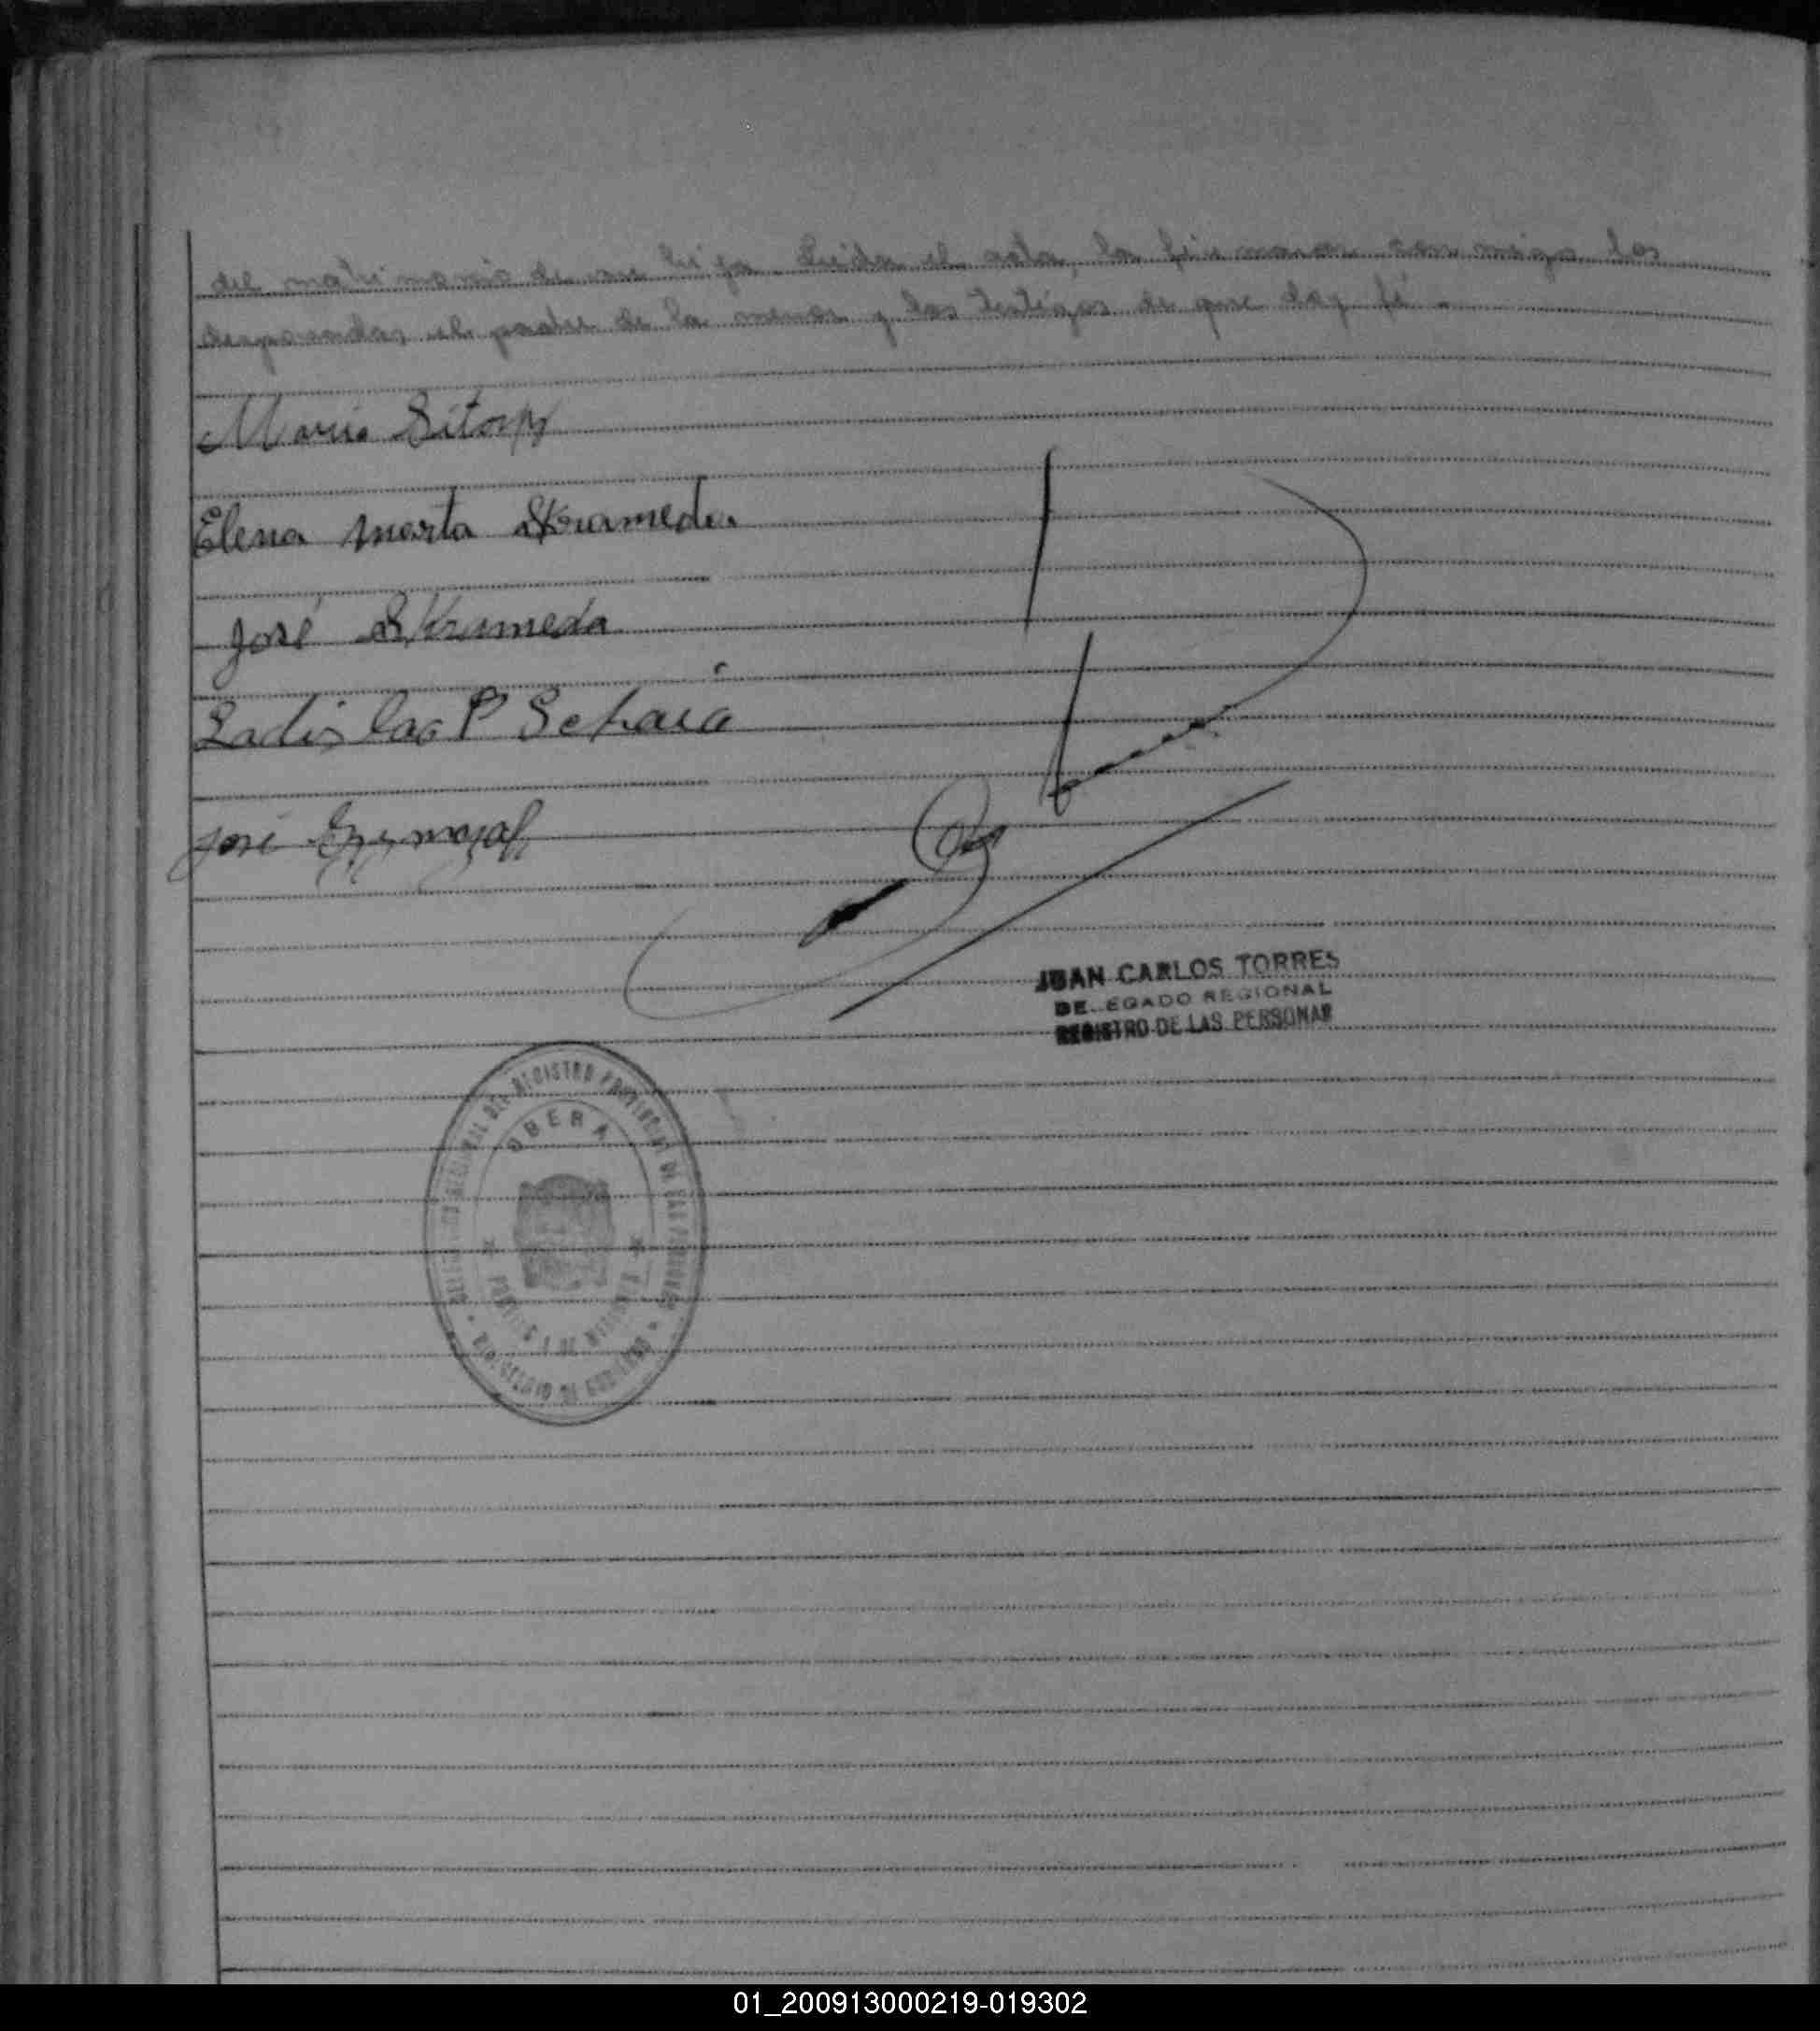 del matrimonio de su hija. Leida el acta, la firmaron con migo los
desposados, el padre de la menor y los testigos de que doy fé.
Mario
Elena Marta Skrameda
José Skrameda
Ladislao P
José
JUAN CARLOS TORRES
DELEGADO REGIONAL
REGISTRO DE LAS PERSONAS
REGIONAL DEL REGISTRO PROVINCIAL DE LAS PERSONAS
OBERA
PROVINCIA DE MISIONES
MINISTERIO DE GOBIERNO
01_200913000219-019302